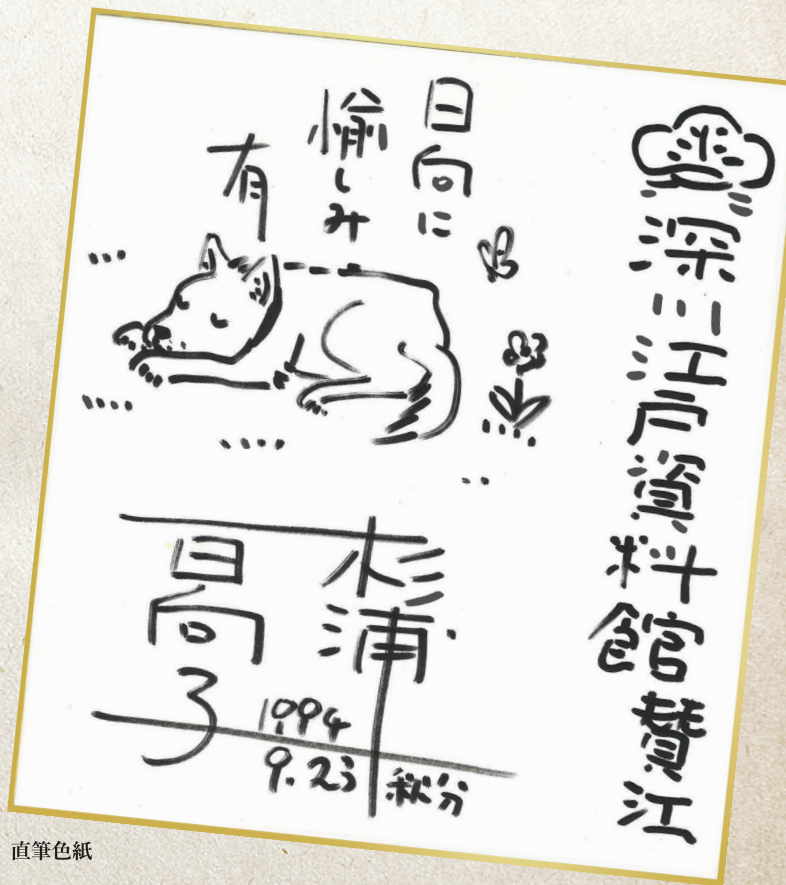 深川江戸資料館賛江
日向に
愉しみ
有
杉浦
日向子
1994
9.23
秋分
直筆色紙